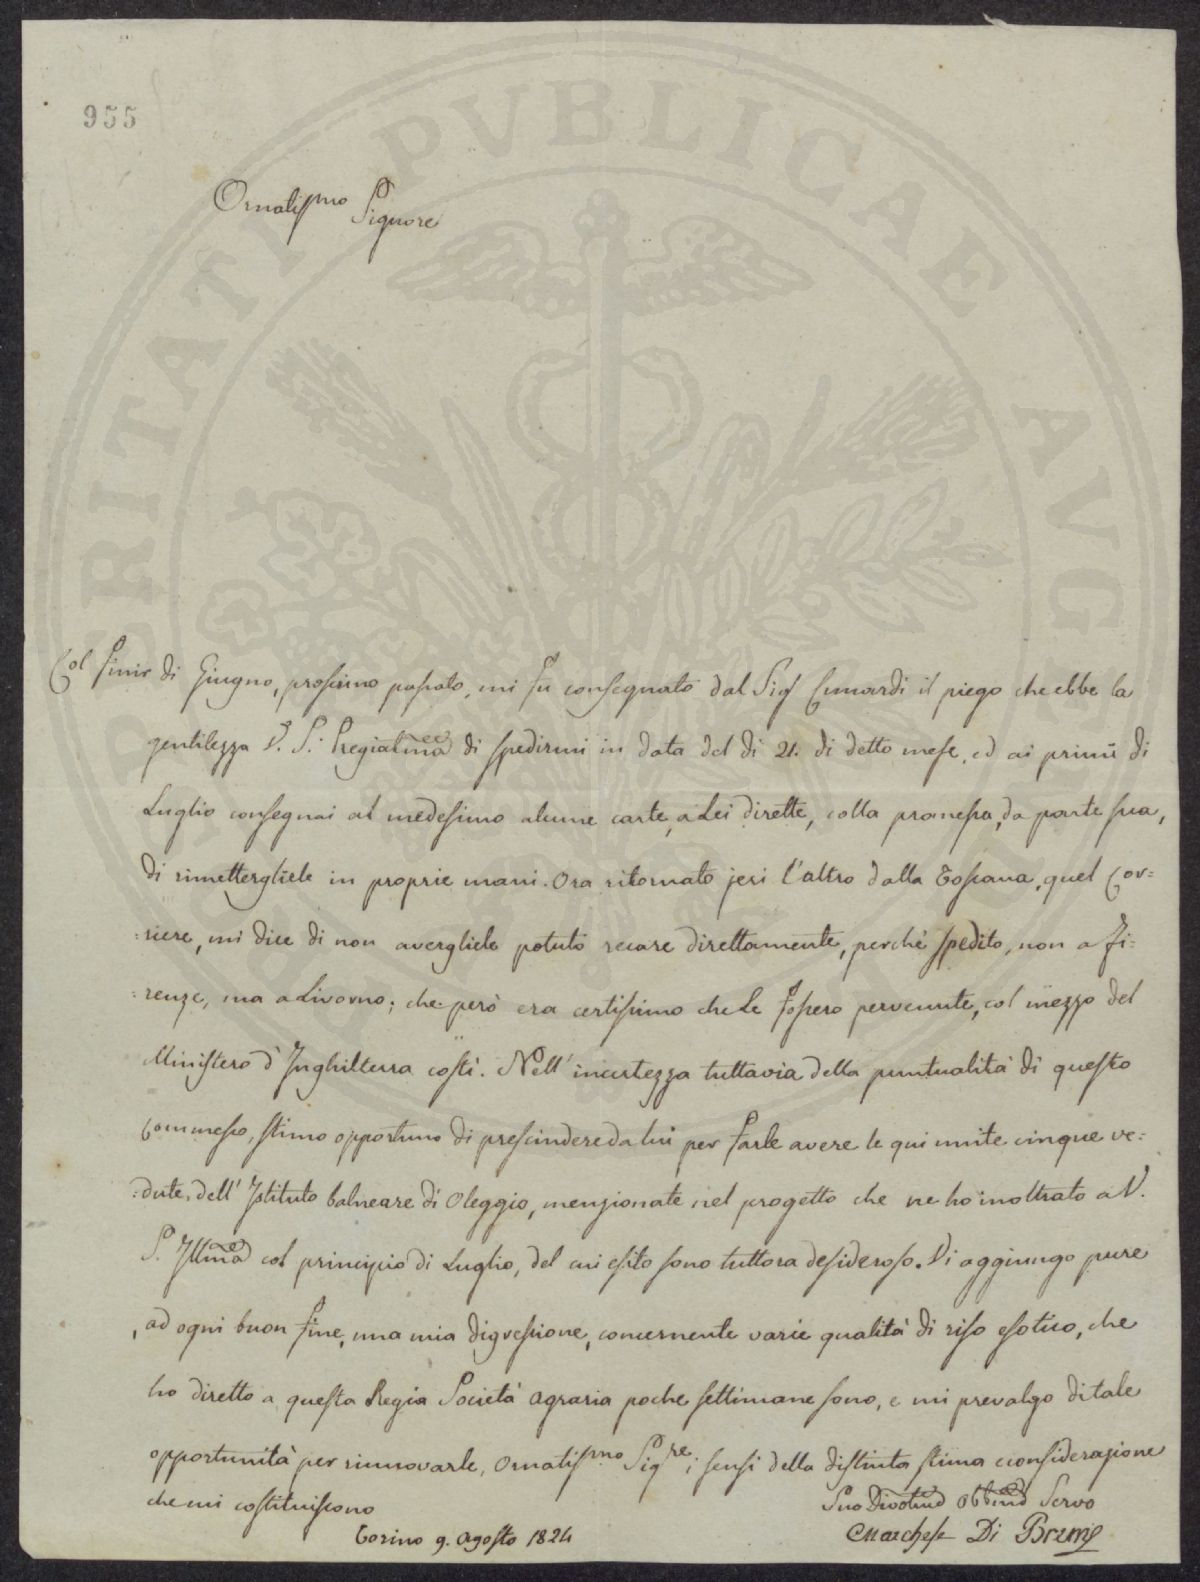 955
PVBLICAE
RITATI
AVG
Ornatissmo Signore
Col finir di Giugno, prossimo passato, mi fu consegnato dal Sigr Cunardi il piego che ebbe la
gentilezza V. S. Pregiatma di spedirmi in data del dì 21. di detto mese, ed ai primi di
Luglio consegnai al medesimo alcune carte, a Lei dirette, colla promessa, da parte sua,
di rimettergliele in proprie mani. Ora ritornato jeri l'altro dalla Toscana, quel Cor=
=riere, mi dice di non avergliele potuto recare direttamente, perchè spedito, non a Fi=
=renze, ma a Livorno; che però era certissimo che Le fossero pervenute, col mezzo del
Ministero d'Inghilterra costì. Nell'incertezza tuttavia della puntualità di questo
commesso, stimo opportuno di prescindere da lui per farle avere le qui unite cinque ve=
=dute, dell'Istituto balneare di Oleggio, menzionate nel progetto che ne ho inoltrato a V.
S. Illma col principio di Luglio, del cui esito sono tuttora desideroso. Vi aggiungo pure
, ad ogni buon fine, una mia digressione, concernente varie qualità di riso esotico, che
ho diretto a questa Regia Società agraria poche settimane sono, e mi prevalgo di tale
opportunità per rinnovarle, Ornatissmo Sigre, i sensi della distinta stima e considerazione
che mi costituiscono
Suo Divotmo Obbmo Servo
Torino 9. Agosto 1824
Marchese Di Breme